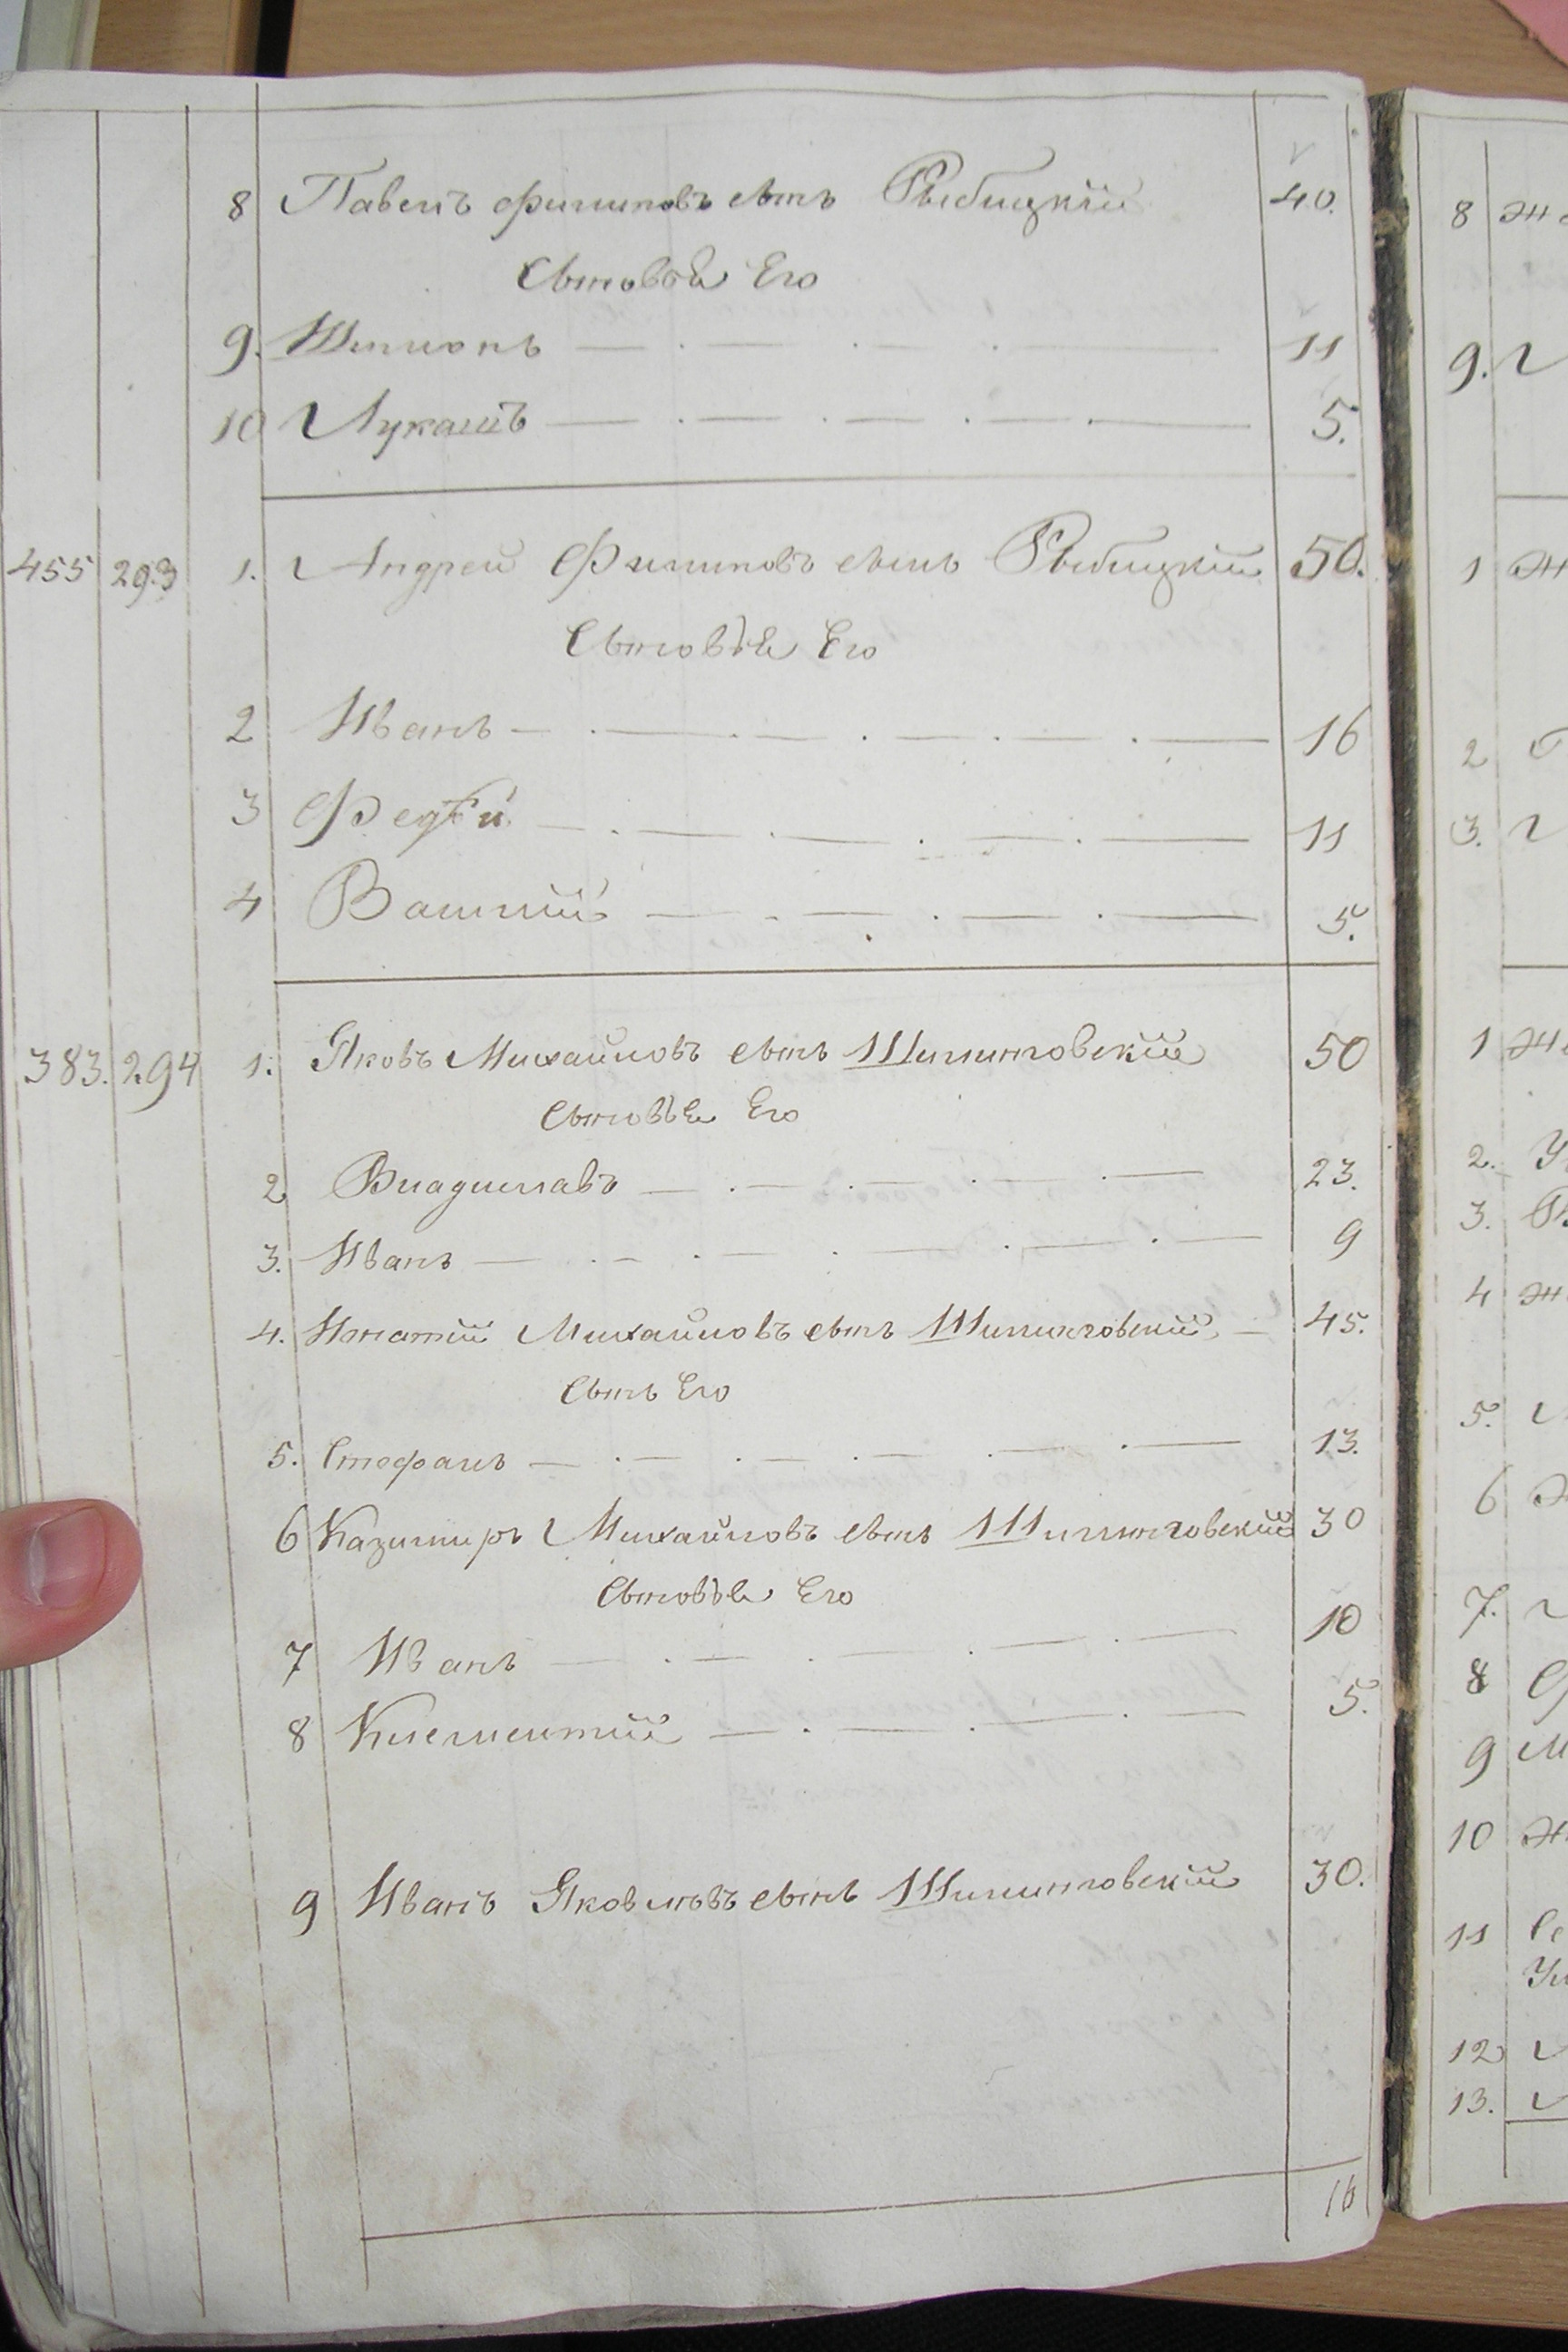 8 Павелъ Филиповъ сынъ Рыбицкій 40.
Сыновья Его
9. Шимонъ 11
10 Лукашъ 5.
455 293 1. Андрей Филиповъ сынъ Рыбицкій 50.
Сыновья Его
2 Иванъ 16
3 11
4 5.
383. 294 1. Яковъ Михайловъ сынъ Шилинговскій 50
Сыновья Его
2 Владиславъ 23.
3. Иванъ 9
4. Игнатій Михайловъ сынъ Шилинговскій 45.
Сынъ Его
5. Стефанъ 13.
6 Казимиръ Михайловъ сынъ Шилинговскій 30
Сыновья Его
7 Иванъ 10
8 Климентій 5.
9 Иванъ Яковлевъ сынъ Шилинговскій 30.
16
8
9.
1
2
3.
1
2.
3.
4
5.
6
7.
8
9
10
11
12
13.